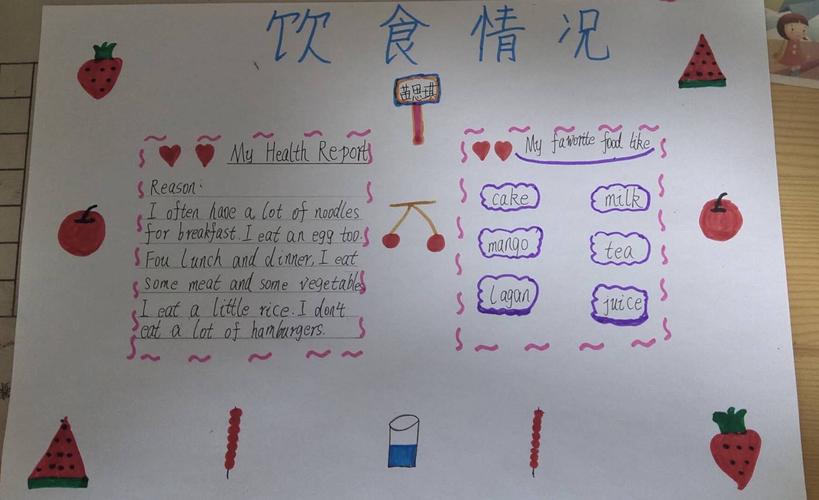 饮食情况
苗思琪
My Health Report
Reason:
I often have a lot of noodles
for breakfast. I eat an egg too.
Fou lunch and dinner, I eat
some meat and some vegetables
I eat a little rice. I don't
eat a lot of hamburgers.
My favorite food like
cake
milk
mango
tea
Lagan
juice